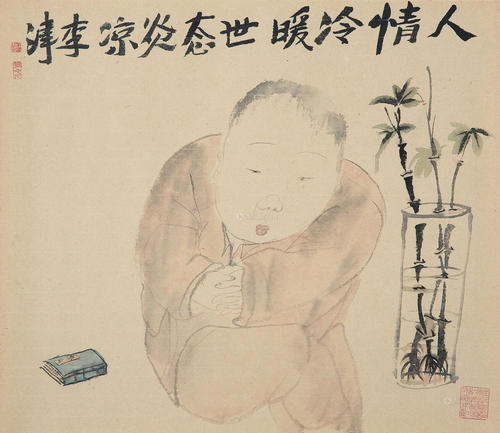 人情冷暖世态炎凉李津